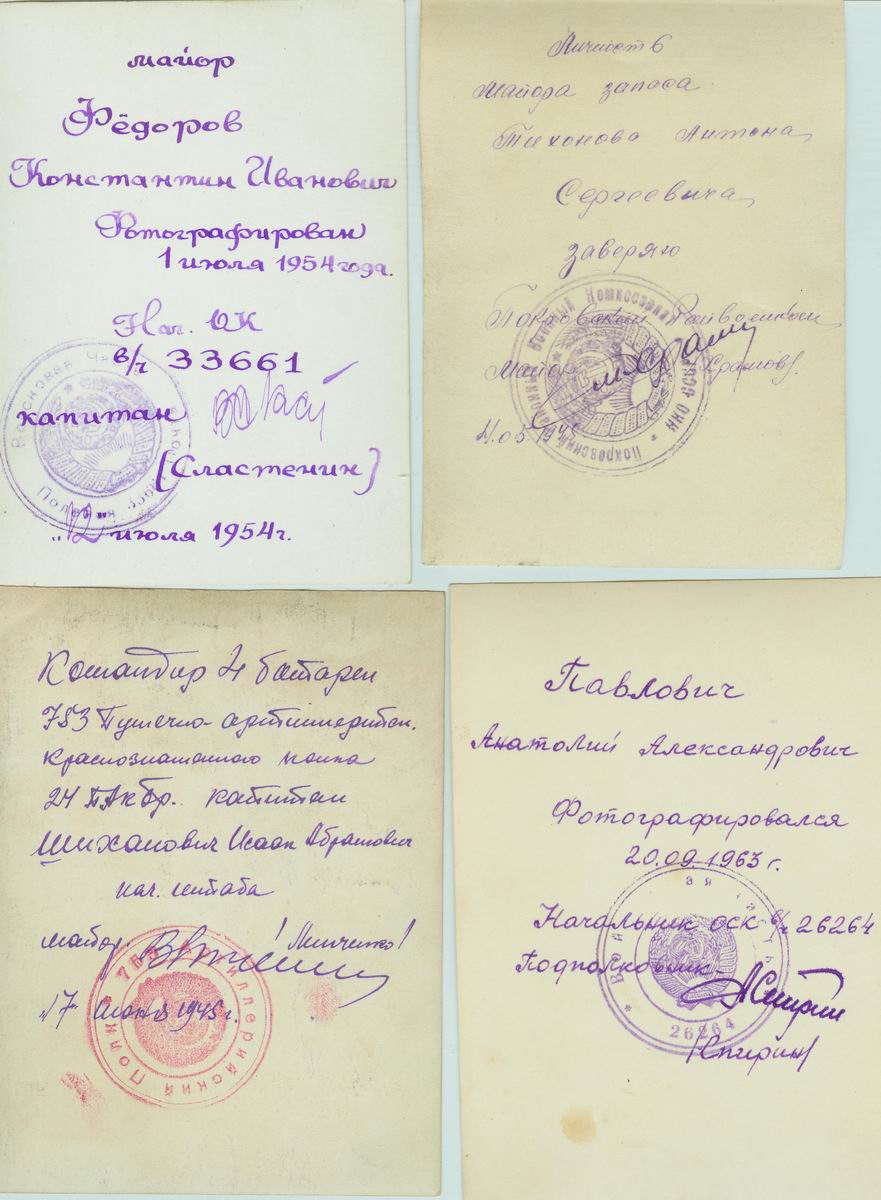 майор
Фёдоров
Константин Иванович
Фотографирован
1 июля 1954 года.
Нач. ОК
в/ч 33661
капитан
(Сластенин)
"12" июля 1954 г.
Личность
Майора запаса
Тихонова Антона
Сергеевича
заверяю
Майор Храмов
Покровский Военный Комиссариат
Командир 4 батареи
783 Пушечно-артиллерийск.
краснознаменного полка
24 ПАКбр. капитан
Шиханович Исаак Абрамович
нач. штаба
майор /Минченко/
17 июня 1945 г.
Артиллерийский Полк
Павлович
Анатолий Александрович
Фотографировался
20.09.1963 г.
Начальник ОСК в/ч 26264
Подполковник-
/Спирин/
26264